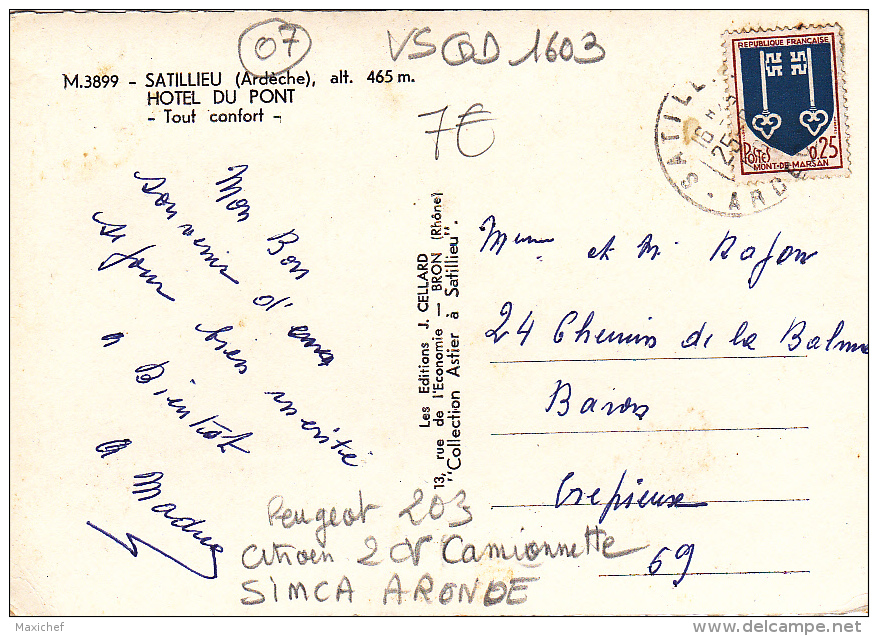 07
VSQD 1603
7€
M.3899 - SATILLIEU (Ardèche), alt. 465 m.
HOTEL DU PONT
- Tout confort -
REPUBLIQUE FRANÇAISE
POSTES 0,25
MONT-DE-MARSAN
SATILL
16 H
25
ARDE
Mon Bon
souvenir d'un
séjour bien mérité
a Bientôt
a
Les Editions J. CELLARD
13, rue de l'Economie — BRON (Rhône)
"Collection Astier à Satillieu".
et M. Rafon
24 Chemin de la Balme
Baron
Crepieux
69
Peugeot 203
Citroen 2 CV Camionnette
SIMCA ARONDE
Maxichef
www.delcampe.net